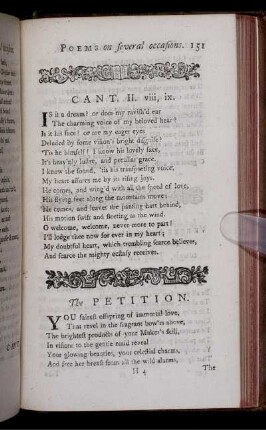 POEMS on several occasions. 151
CANT. II. viii, ix.
IS it a dream? or does my ravish'd ear
The charming voice of my beloved hear?
Is it his face? or are my eager eyes
Deluded by some vision's bright disguise?
'Tis he himself! I know his lovely face,
It's heav'nly lustre, and peculiar grace.
I know the sound, 'tis his transporting voice,
My heart assures me by its rising joys.
He comes, and wing'd with all the speed of love,
His flying feet along the mountains move:
He comes, and leaves the panting hart behind;
His motion swift and fleeting as the wind.
O welcome, welcome, never more to part!
I'll lodge thee now for ever in my heart;
My doubtful heart, which trembling scarce believes,
And scarce the mighty ecstasy receives.
The PETITION.
YOU fairest offspring of immortal love,
That revel in the fragrant bow'rs above,
The brightest products of your Maker's skill,
In visions to the gentle maid reveal
Your glowing beauties, your celestial charms,
And free her breast from all the wild alarms,
H 4 The